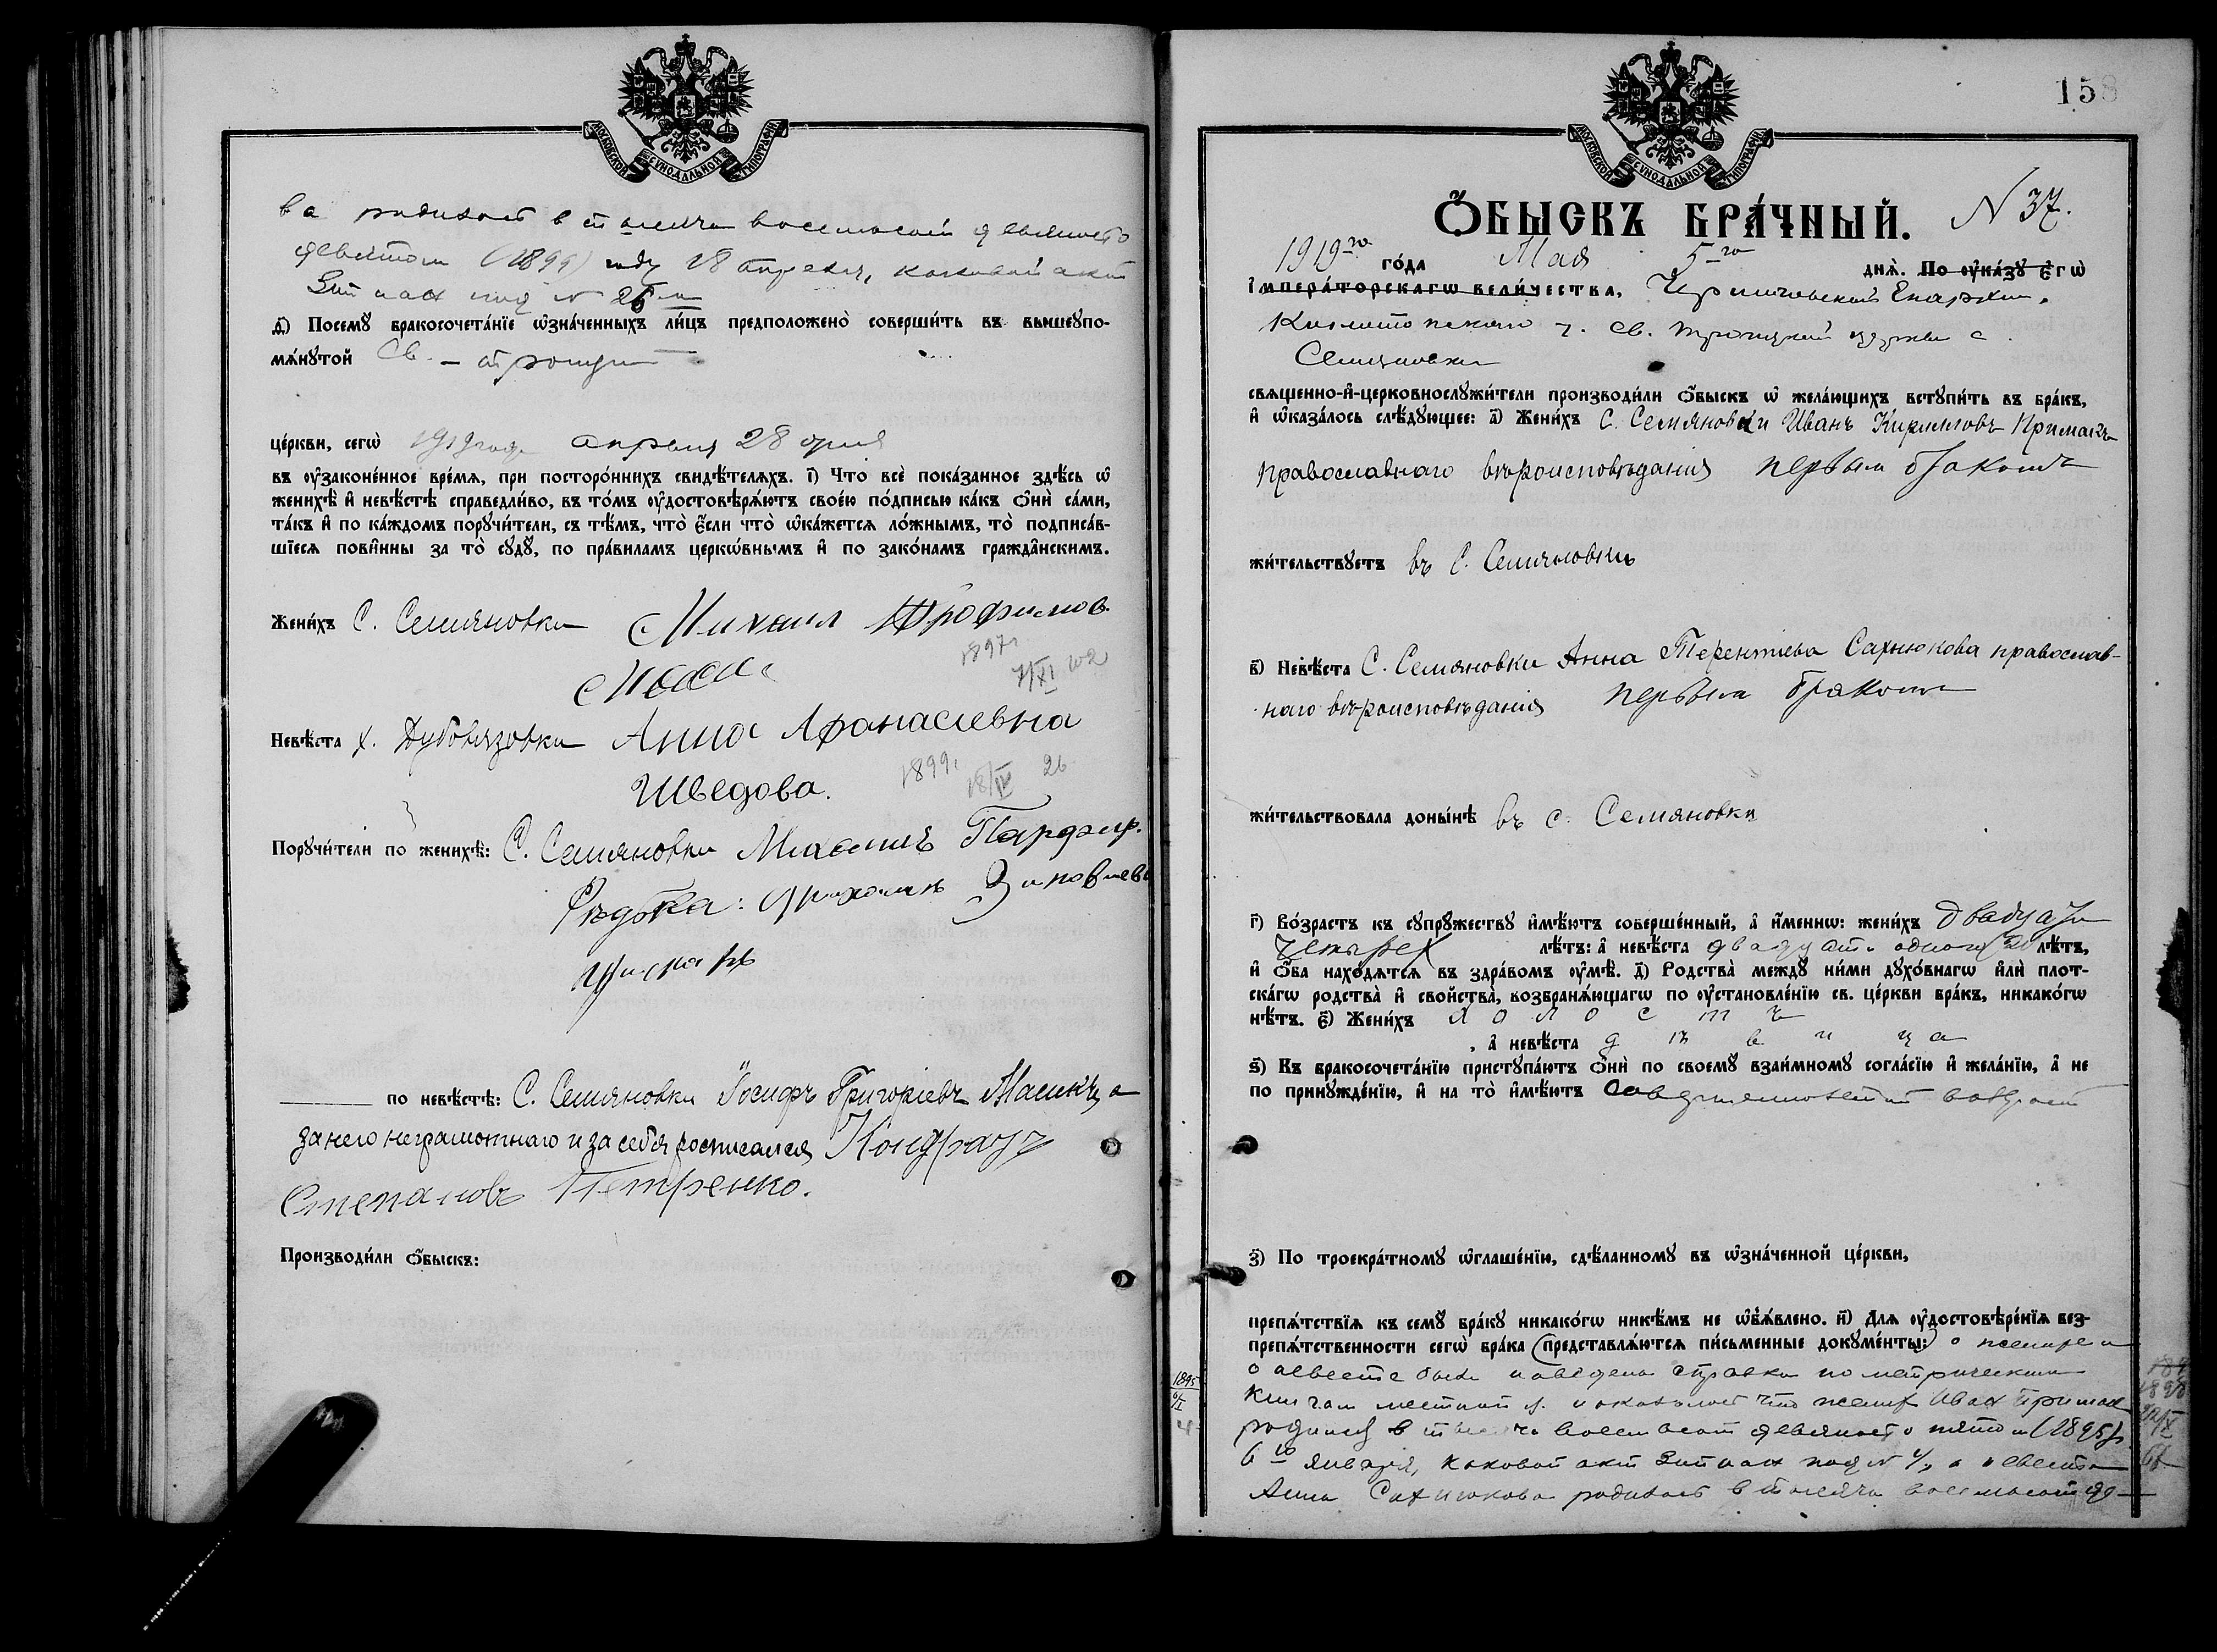 МОСКОВСКОЙ СѴНОДАЛЬНОЙ ТИПОГРАФІИ
ва родилась в тысяча восемьсот девяносто
девятом (1899) году 18 апреля, каковой акт
записан под N 26м
д҃і) Посемꙋ̀ бракосочета́нїе ѡ҆зна́ченныхъ ли́цъ предположено̀ соверши́ть въ вышеꙋпо-
мѧ́нꙋтой Св. – троицкой
це́ркви, сегѡ̀ 1919 года апреля 28 дня
въ ᲂу҆зако́ненное вре́мѧ, при посторо́ннихъ свидѣ́телѧхъ. і҃) Что̀ всѐ пока́занное здѣ́сь ѡ҆
женихѣ̀ и҆ невѣ́стѣ справедли́во, въ то́мъ ᲂу҆достовѣрѧ́ютъ свое́ю по́дписью ка́къ ѻ҆нѝ са́ми,
та́къ и҆ по ка́ждомъ порꙋчи́тели, съ тѣ́мъ, что̀ є҆́сли что̀ ѡ҆ка́жетсѧ ло́жнымъ, то̀ подписа́в-
шїесѧ пови́нны за то̀ сꙋдꙋ̀, по пра́виламъ церкѡ́внымъ и҆ по зако́намъ гражда́нскимъ.
Жени́хъ С. Семяновки Михаил Трофимов.
1897
7/XI
Невѣ́ста х. Дубовязовки Анна Афанасиевна
1899
18/IV 26
Шведова.
Порꙋчи́тели по женихѣ̀: С. Семяновки Максимъ Парфир.
Редька: Зиновиевъ
по невѣ́стѣ: С. Семяновки Іосифъ Григоріевъ Масикъ, а
за него неграмотнаго и за себя росписался Кондрат
Степановъ Петренко.
Производи́ли ѻ҆́быскъ:
158
МОСКОВСКОЙ СѴНОДАЛЬНОЙ ТИПОГРАФІИ
Ѻ҆́БЫСКЪ БРА́ЧНЫЙ. N 37.
1919го го́да Мая 5го днѧ̀. По ᲂу҆ка́зꙋ Є҆гѡ̀
І҆мпера́торскагѡ вели́чества, Черниговской Епархии,
у. св. Троицкой церкви с.
Семяновки
свѧще́нно-и҆-церковнослꙋжи́тели производи́ли ѻ҆́быскъ ѡ҆ жела́ющихъ встꙋпи́ть въ бра́къ,
и҆ ѡ҆каза́лось слѣ́дꙋющее: а҃) Жени́хъ С. Семяновки Иванъ Кирилловъ Примакъ
православнаго вѣроисповѣданія первым браком
жи́тельствꙋетъ въ С. Семяновкѣ
в҃) Невѣ́ста С. Семяновки Анна Терентіева Сахнюкова православ-
наго вѣроисповѣданія первым браком
жи́тельствовала доны́нѣ въ с. Семяновки
г҃) Во́зрастъ къ сꙋпрꙋ́жествꙋ и҆мѣ́ютъ соверше́нный, а҆ и҆́меннѡ: жени́хъ двадцати
четырех лѣ́тъ: а҆ невѣ́ста двадцати одного лѣ́тъ,
и҆ ѻ҆́ба нахо́дѧтсѧ въ здра́вомъ ᲂу҆мѣ̀. д҃) Родства̀ междꙋ̀ ни́ми дꙋхо́внагѡ и҆лѝ плот-
ска́гѡ родства̀ и҆ свойства̀, возбранѧ́ющагѡ по ᲂу҆становле́нїю св. це́ркви бра́къ, никако́гѡ
нѣ́тъ. є҃) Жени́хъ холостъ
, а҆ невѣ́ста дѣвица
ѕ҃) Къ бракосочета́нїю пристꙋпа́ютъ ѻ҆нѝ по своемꙋ̀ взаи́мномꙋ согла́сїю и҆ жела́нїю, а҆ не
по принꙋжде́нїю, и҆ на то̀ и҆мѣ́ютъ совершеннолетний возраст
з҃) По троекра́тномꙋ ѡ҆глаше́нїю, сдѣ́ланномꙋ въ ѡ҆зна́ченной це́ркви,
препѧ́тствїѧ къ семꙋ̀ бра́кꙋ никако́гѡ никѣ́мъ не ѡ҆б̾ѧ́влено. и҃) Длѧ ᲂу҆достовѣре́нїѧ без-
препѧ́тственности сегѡ̀ бра́ка (представлѧ́ютсѧ пи́сьменные докꙋме́нты:) о женихе и
о невесте была наведена справка по метрическим
книгам местной ц. и оказалось что жених Иван Примак
родился в тысяча восемьсот девяносто пятом (1895) г.
6го января, каковой акт записан под N 4, а невеста
Анна Сахнюкова родилась в тысяча восемьсот де-
1895
6/I
4
1898